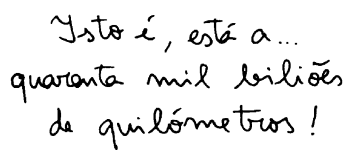 Isto é, está a...
quarenta mil biliões
de quilómetros!